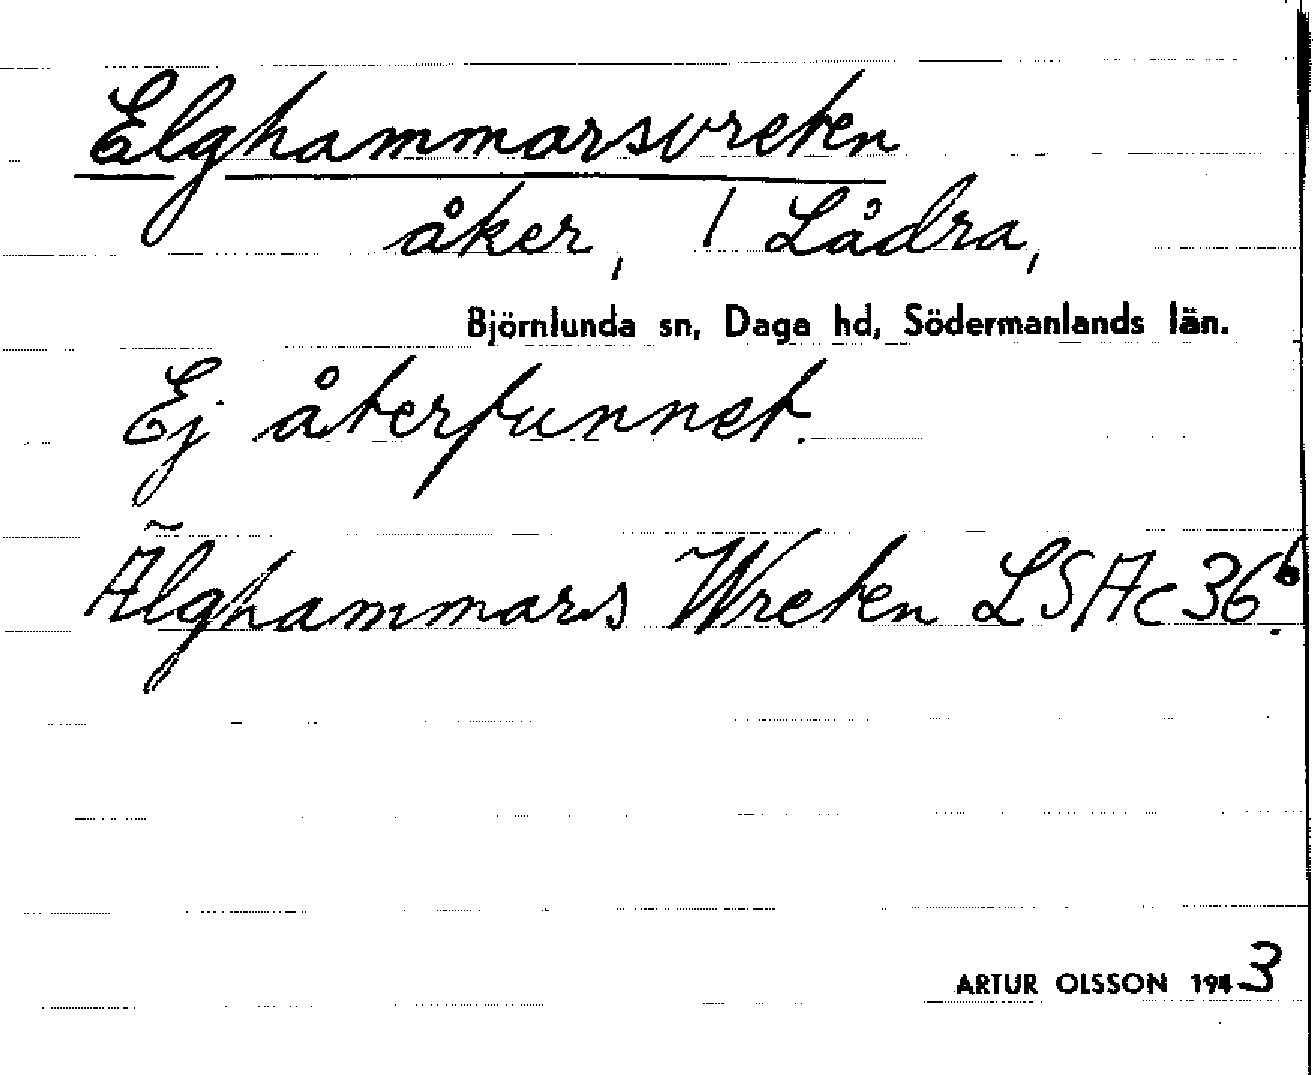 Elghammarsvreten
åker, / Lådra,
Björnlunda sn, Daga hd, Södermanlands län.
Ej återfunnet.
Älghammars Wreten LSAc 36ᵇ.
ARTUR OLSSON 1943